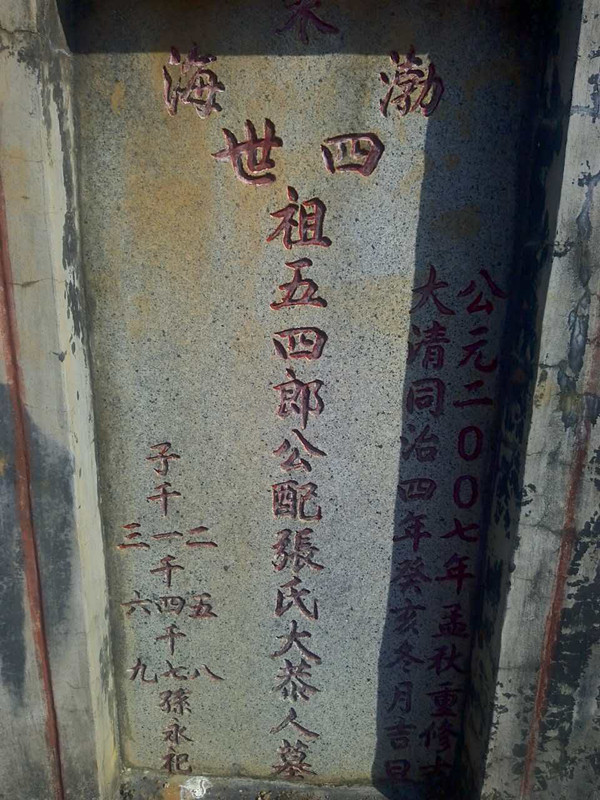 渤海
四世
公元二00七年孟秋重修
大清同治四年癸亥冬月吉旦
祖五四郎公配張氏大恭人墓
二五八
子千一千四千七孫永祀
三六九